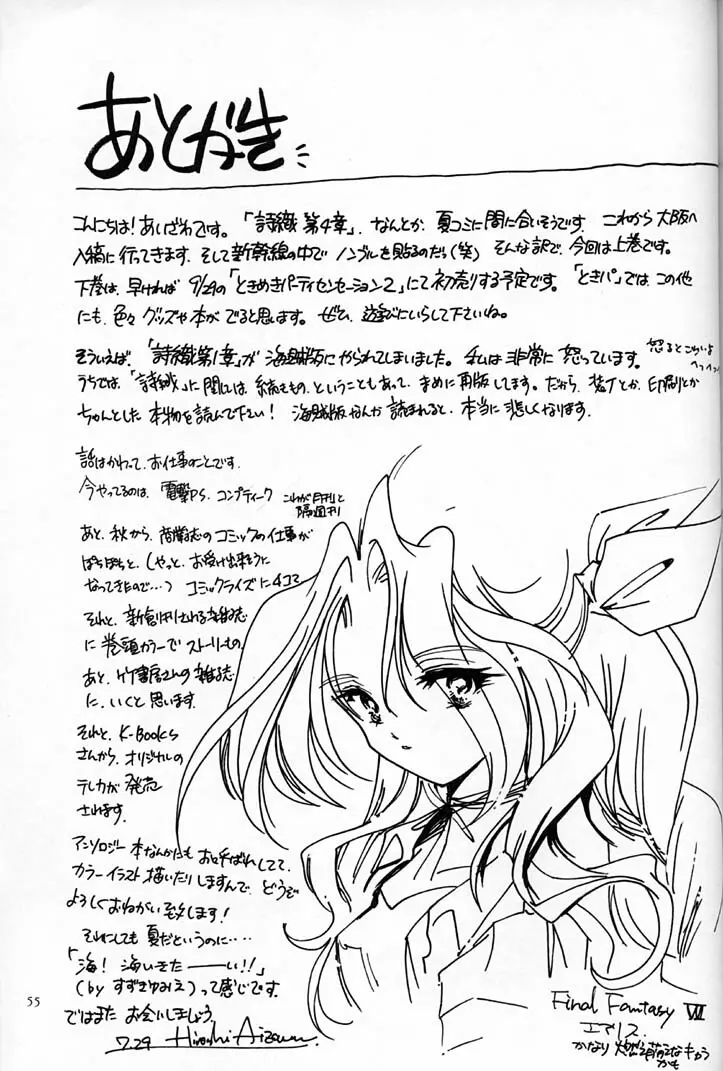 あとがき
こんにちは!あいざわです。「詩織 第4章」、なんとか、夏コミに間に合いそうです。これから大阪へ
入稿に行ってきます。そして新幹線の中でノンブルを貼るのだら(笑) そんな訳で、今回は上巻です。
下巻は、早ければ 9/29の「ときめきパーティセンセーション2」にて初売りする予定です。「ときパ」では、この他
にも、色々グッズや本がでると思います。ぜひ、遊びにいらして下さいね。
そういえば、「詩織第1章」が海賊版にやられてしまいました。私は非常に怒っています。
怒るとこわいよ
へっへっ
うちでは、「詩織」に関しては、続きもの、ということもあって、まめに再版します。だから、装丁とか、印刷とか
ちゃんとした本物を読んで下さい! 海賊版なんか読まれると、本当に悲しくなります。
話はかわって、お仕事のことです。
今やってるのは、電撃PS、コンプティーク
これが月刊と
隔週刊
あと、秋から、商業誌のコミックの仕事が
ぽちぽちと、(やっと、お受け出来そうに
なってきたので…) コミックライズに4コマ
それと、新創刊される雑誌
に巻頭カラーでストーリーもの、
あと、竹書房さんの雑誌
に、いくと思います。
それと、K-Books
さんから、オリジナルの
テレカが発売
されます。
アンソロジー本なんかにもお呼ばれしてて、
カラーイラスト描いたりしますんで、どうぞ
よろしくおねがい致します!
それにしても夏だというのに‥‥
「海! 海いきたーーい!!」
(by すずきゆみえ)って感じです。
ではまたお会いしましょう。
7.29 Hiroshi Aizawa.
Final Fantasy VII
エアリス.
かなり 萌えなキャラ
かも
55